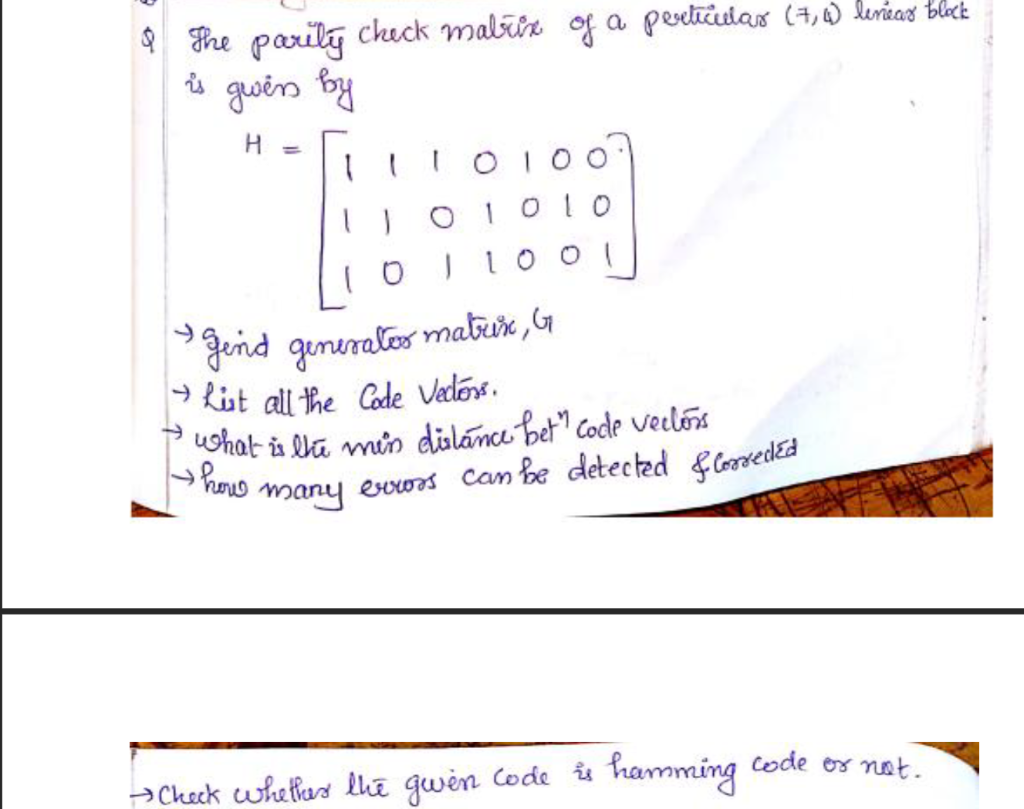 Q The parity check matrix of a perticular (7,4) linear block
is given by
H = [ 1 1 1 0 1 0 0
1 1 0 1 0 1 0
1 0 1 1 0 0 1 ]
→ Find generator matrix, G
→ List all the Code Vectors.
→ what is the min distance betⁿ code vectors
→ how many errors can be detected & Corrected
→ Check whether the given code is hamming code or not.